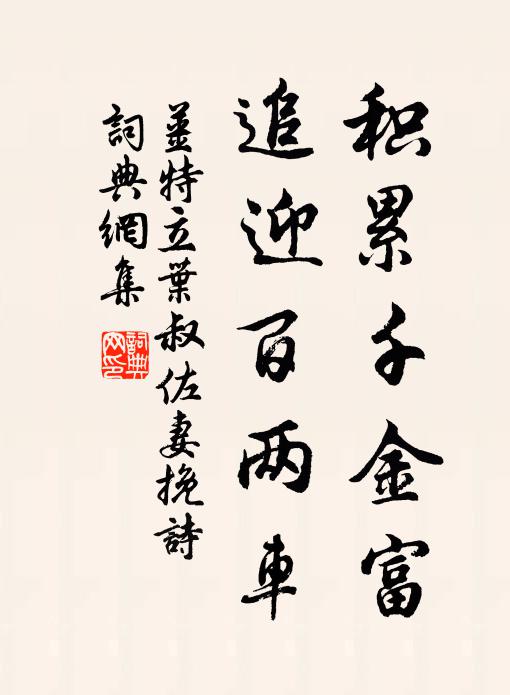 积累千金富
追迎百两車
姜特立葉叔佐妻挽詩
詞典網集
詞典網印